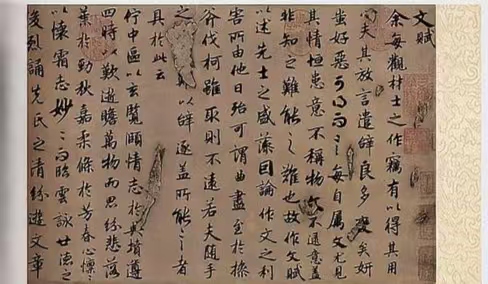 文賦
余每觀材士之作竊有以得其用
心夫其放言遣辭良多變矣妍
蚩好惡可得而言每自屬文尤見
其情恒患意不稱物文不逮意蓋
非知之難能之難也故作文賦
以述先士之盛藻因論作文之利
害所由他日殆可謂曲盡至於操
斧伐柯雖取則不遠若夫隨手
之以辭逐蓋所能言者
具於此云
佇中區以玄覽頤情志於典墳遵
四時以歎逝瞻萬物而思紛悲落
葉於勁秋嘉柔條於芳春心懍〻
以懷霜志妙〻而臨雲詠世德之
俊烈誦先民之清芬遊文章